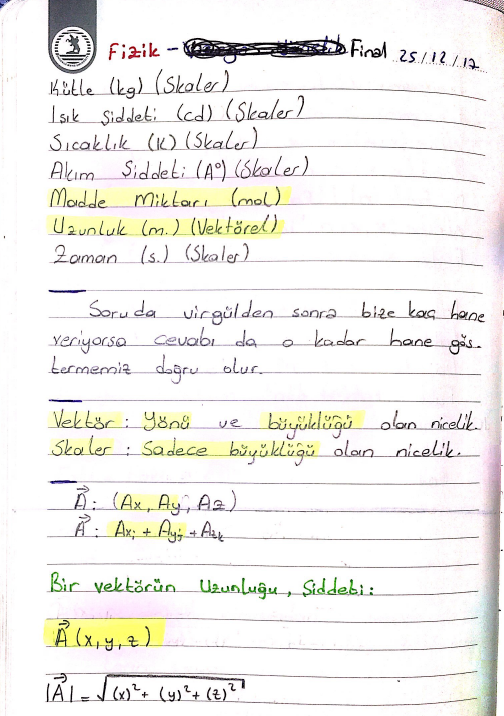 Fizik - Final 25/12/17
Kütle (kg) (Skaler)
Işık Şiddeti (cd) (Skaler)
Sıcaklık (K) (Skaler)
Akım Şiddeti (A°) (Skaler)
Madde Miktarı (mol)
Uzunluk (m.) (Vektörel)
Zaman (s.) (Skaler)
Soruda virgülden sonra bize kaç hane
veriyorsa cevabı da o kadar hane gös-
termemiz doğru olur.
Vektör : Yönü ve büyüklüğü olan nicelik.
Skaler : Sadece büyüklüğü olan nicelik.
A⃗ : (Ax, Ay, Az)
A⃗ : Axi + Ayj + Azk
Bir vektörün Uzunluğu, Şiddeti :
A⃗ (x, y, z)
|A⃗| = √(x)² + (y)² + (z)²